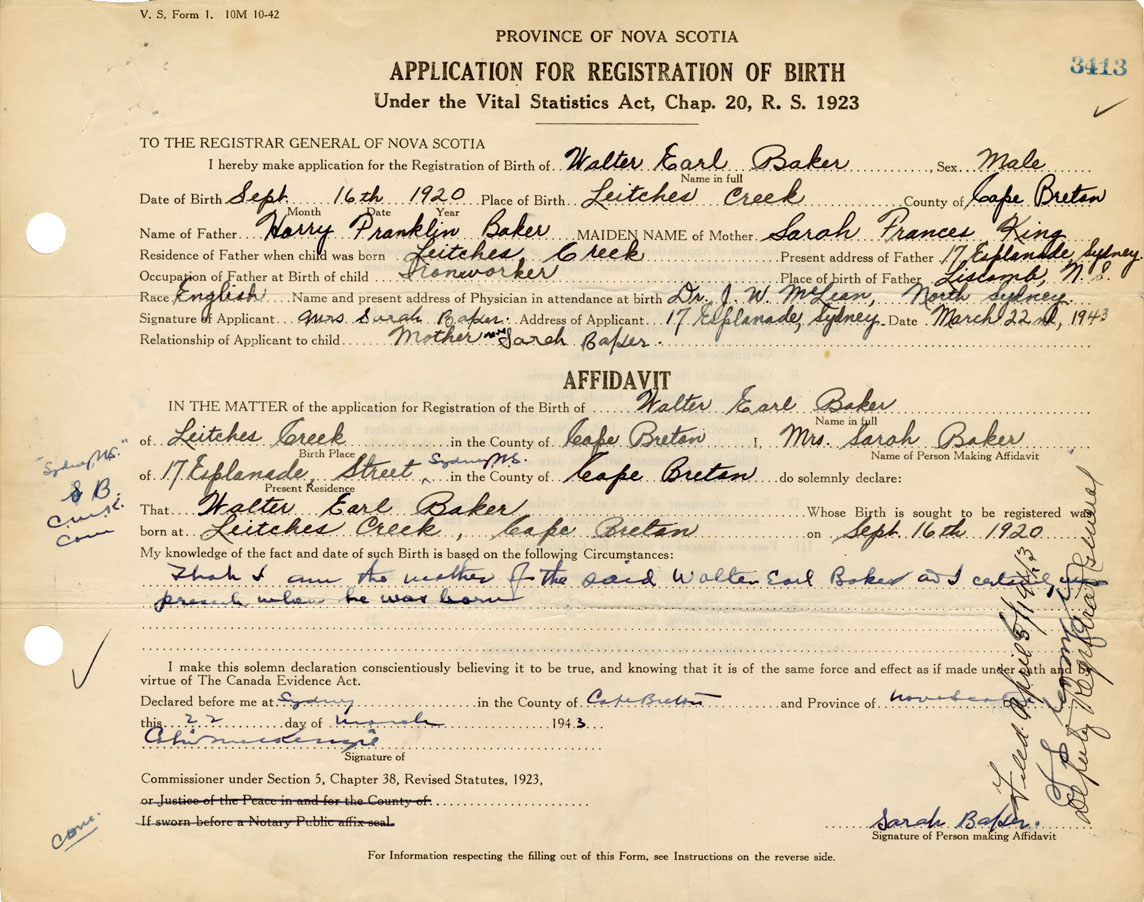 V. S. Form 1. 10M 10-42
PROVINCE OF NOVA SCOTIA
3413
APPLICATION FOR REGISTRATION OF BIRTH
Under the Vital Statistics Act, Chap. 20, R. S. 1923
TO THE REGISTRAR GENERAL OF NOVA SCOTIA
I hereby make application for the Registration of Birth of Walter Earl Baker, Sex Male
Name in full
Date of Birth Sept. 16th 1920 Place of Birth Leitches Creek County of Cape Breton
Month Date Year
Name of Father Harry Franklin Baker MAIDEN NAME of Mother Sarah Frances King
Residence of Father when child was born Leitches Creek Present address of Father 17 Esplanade, Sydney.
Occupation of Father at Birth of child Ironworker Place of birth of Father Liscomb, N.S.
Race English Name and present address of Physician in attendance at birth Dr. J. W. McLean, North Sydney
Signature of Applicant Mrs Sarah Baker. Address of Applicant 17 Esplanade, Sydney. Date March 22nd, 1943
Relationship of Applicant to child Mother Sarah Baker.
AFFIDAVIT
IN THE MATTER of the application for Registration of the Birth of Walter Earl Baker
Name in full
of Leitches Creek in the County of Cape Breton I, Mrs. Sarah Baker
Birth Place Name of Person Making Affidavit
"Sydney, N.S."
S B.
of 17 Esplanade, Street Sydney N.S. in the County of Cape Breton do solemnly declare:
Present Residence
Com
That Walter Earl Baker Whose Birth is sought to be registered was
born at Leitches Creek, Cape Breton on Sept. 16th 1920
My knowledge of the fact and date of such Birth is based on the following Circumstances:
That I am the mother of the said Walter Earl Baker and I certainly was
present when he was born
I make this solemn declaration conscientiously believing it to be true, and knowing that it is of the same force and effect as if made under oath and by
virtue of The Canada Evidence Act.
Declared before me at Sydney in the County of Cape Breton and Province of Nova Scotia
this 22 day of March 1943
McKenzie
Signature of
Commissioner under Section 5, Chapter 38, Revised Statutes, 1923,
or Justice of the Peace in and for the County of
If sworn before a Notary Public affix seal.
Com.
Sarah Baker.
Signature of Person making Affidavit
For Information respecting the filling out of this Form, see Instructions on the reverse side.
Filed April 5/1943
Deputy Registrar General